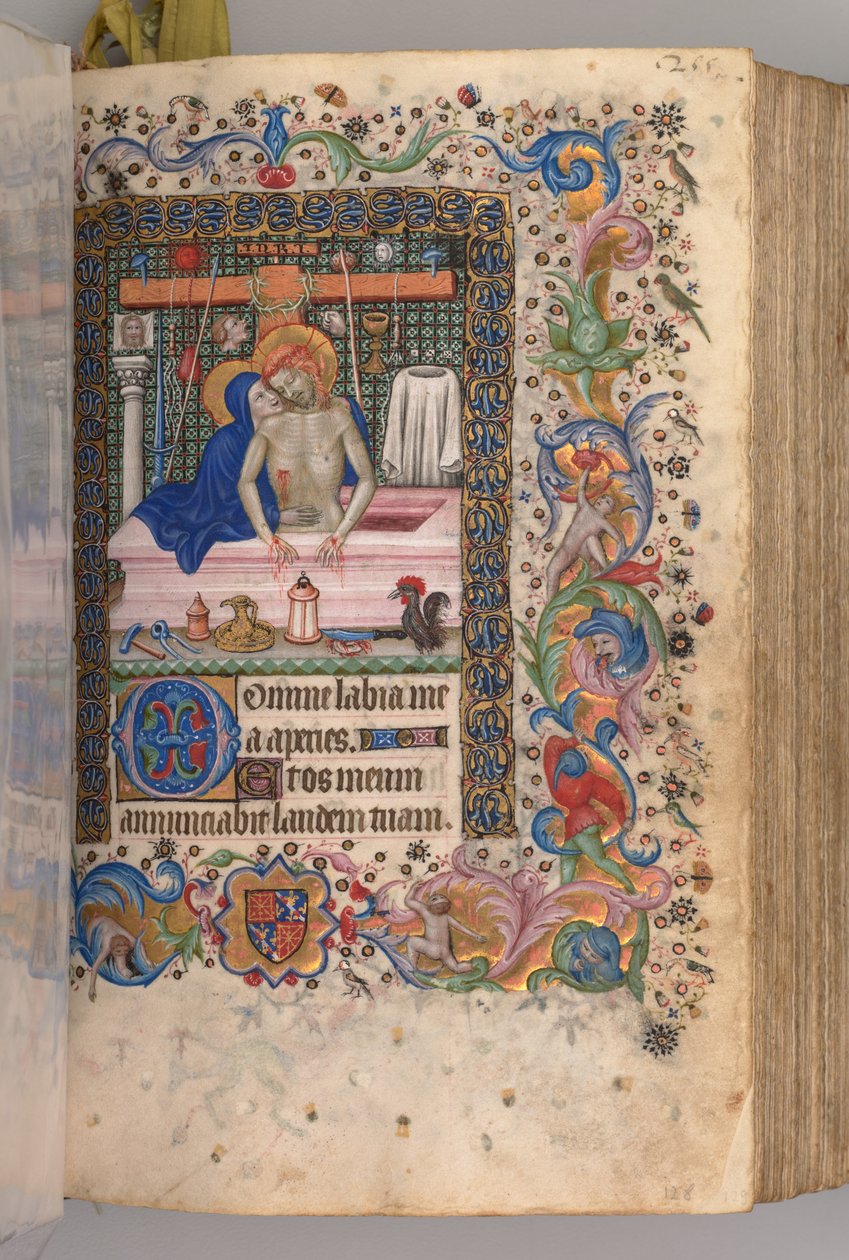 255
I·N·R·I·
Domine labia me
a aperies.
Et os meum
annunciabit laudem tuam.
128